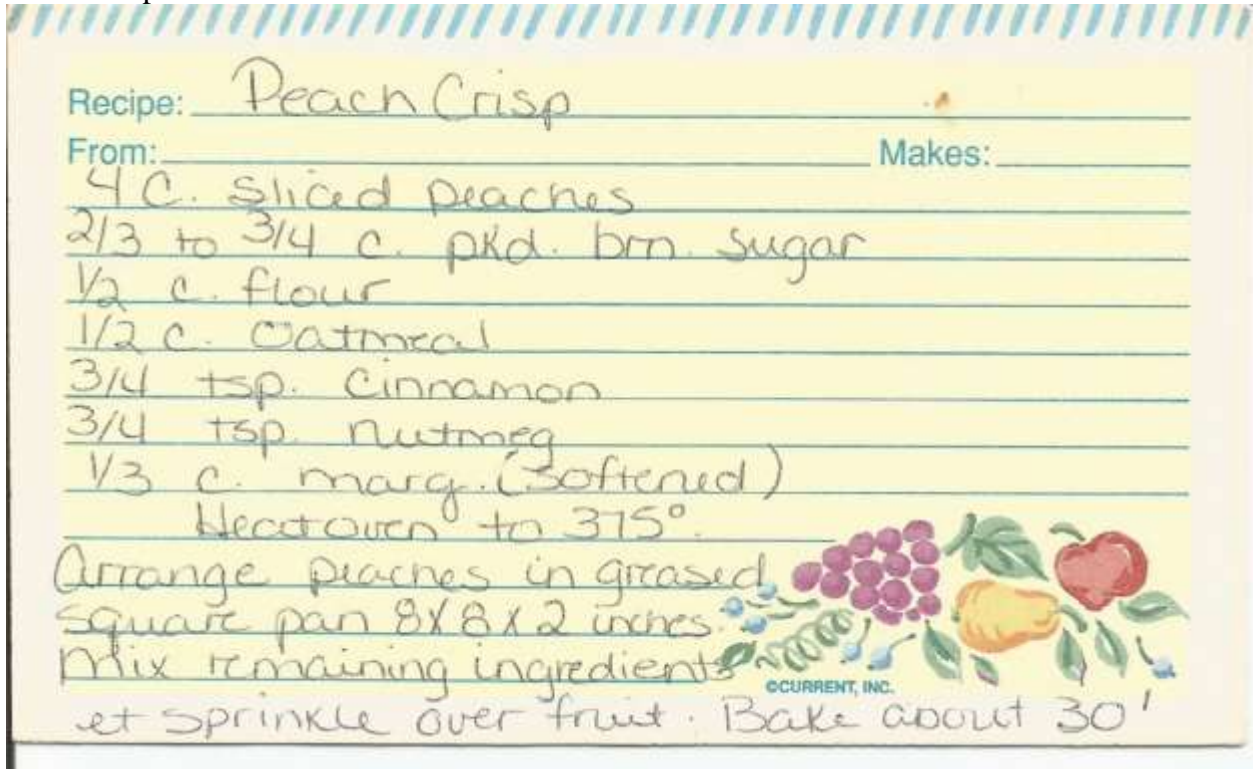 Recipe: Peach Crisp
From: Makes:
4 C. Sliced peaches
2/3 to 3/4 c. pkd. brn. sugar
1/2 c. flour
1/2 c. Oatmeal
3/4 tsp. Cinnamon
3/4 tsp. nutmeg
1/3 c. marg. (Softened)
Heat oven to 375°.
Arrange peaches in greased
square pan 8X8X2 inches.
Mix remaining ingredients
©CURRENT, INC.
et sprinkle over fruit. Bake about 30'